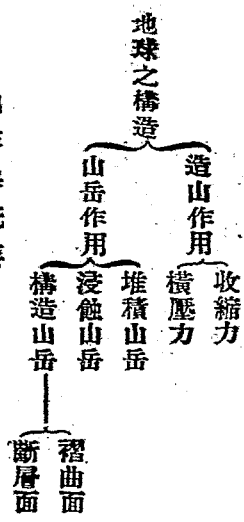 地球之構造
造山作用
收縮力
橫壓力
山岳作用
堆積山岳
浸蝕山岳
構造山岳
褶曲面
斷層面